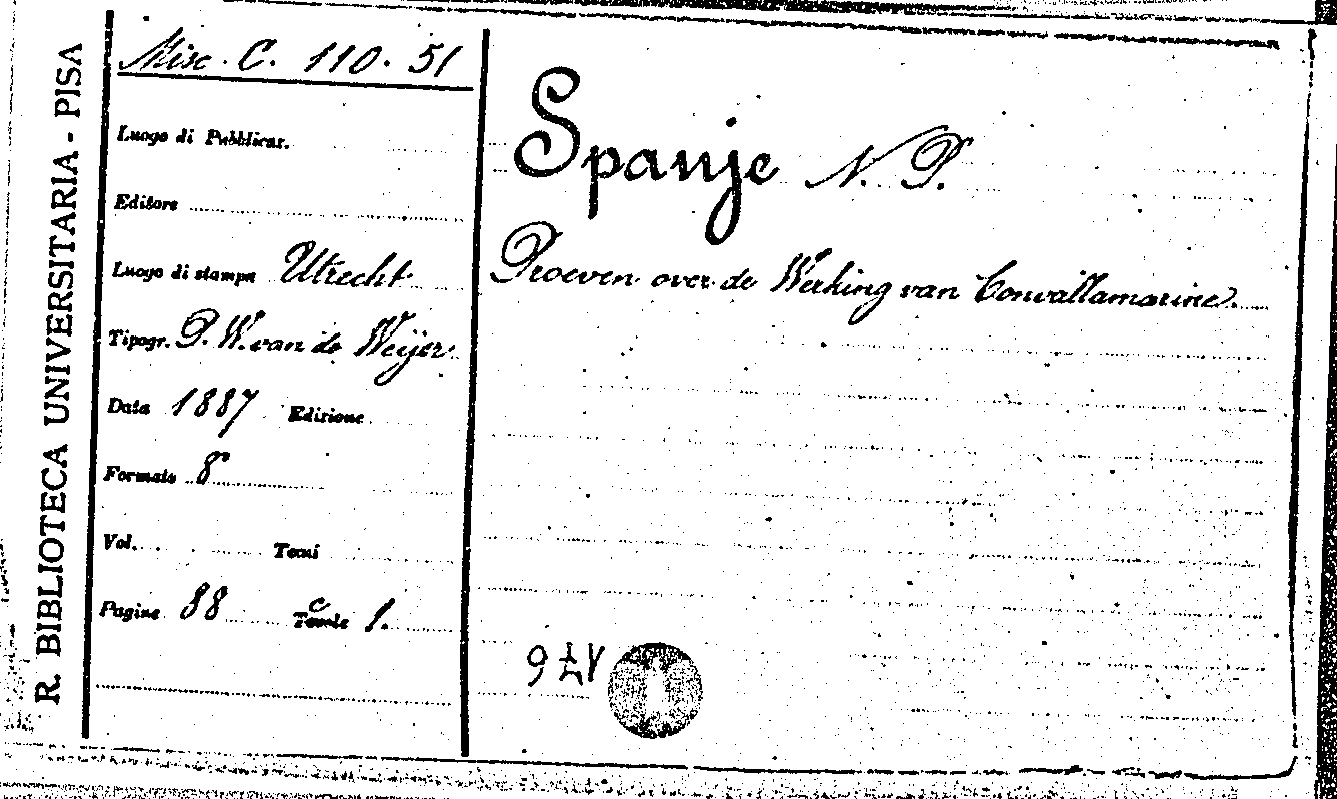 R. BIBLIOTECA UNIVERSITARIA - PISA
Misc. C. 110. 51
Luogo di Pubblicaz.
Editore
Luogo di stampa Utrecht
Tipogr. P. W. van de Weijer
Data 1887 Edizione
Formato 8°
Vol. Tomi
Pagine 88 Tavole c 1.
Spanje N. P.
Proeven over de Werking van Convallamarine.